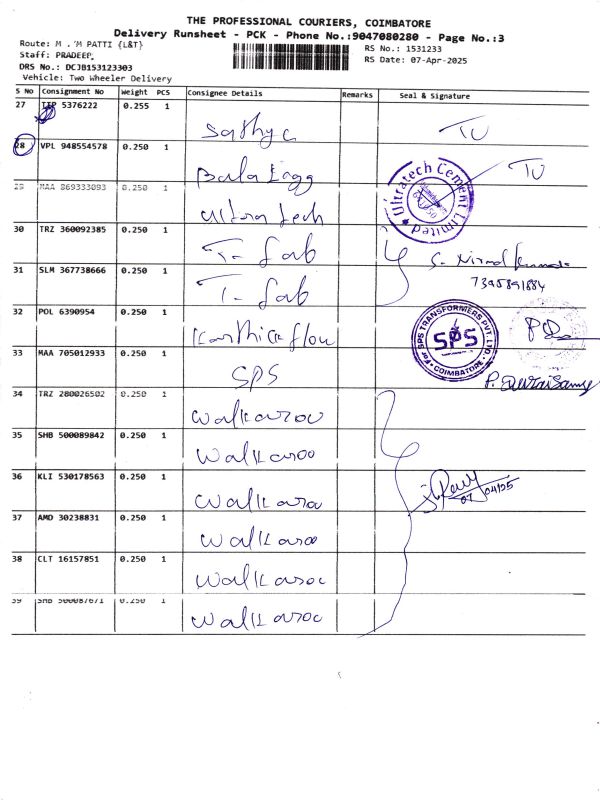 THE PROFESSIONAL COURIERS, COIMBATORE
Delivery Runsheet - PCK - Phone No.:9047080280 - Page No.:3
Route: M . 'M PATTI {L&T}
RS No.: 1531233
Staff: PRADEEP.
RS Date: 07-Apr-2025
DRS No.: DCJB153123303
Vehicle: Two Wheeler Delivery
S No Consignment No Weight PCS Consignee Details Remarks Seal & Signature
27 5376222 0.255 1
Sathya TU
28 VPL 948554578 0.250 1
TU
29 MAA 869333093 0.250 1
Ultra tech
Ultratech Cement Limited
30 TRZ 360092385 0.250 1
T- fab
31 SLM 367738666 0.250 1
T- fab
7395891884
32 POL 6390954 0.250 1
Karthick flou
33 MAA 705012933 0.250 1
SPS
For SPS TRANSFORMERS PVT. LTD.
SPS
COIMBATORE
34 TRZ 280026502 0.250 1
Walkaroo
35 SHB 500089842 0.250 1
Walkaroo
36 KLI 530178563 0.250 1
Walkaroo
07/04/25
37 AMD 30238831 0.250 1
Walkaroo
38 CLT 16157851 0.250 1
Walkaroo
39 SHB 500087671 0.250 1
Walkaroo